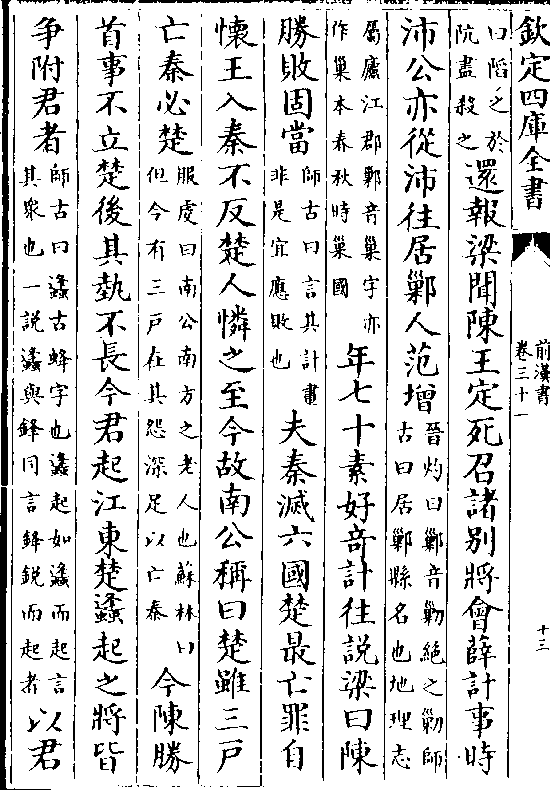 欽定四庫全書
前漢書
卷三十一
十三
曰陷之於
阬盡殺之
還報梁聞陳王定死召諸別將會薛計事時
沛公亦從沛往居鄛人范增
晉灼曰鄛音勦絶之勦師
古曰居鄛縣名也地理志
屬廬江郡鄛音巢字亦
作巢本春秋時巢國
年七十素好竒計往說梁曰陳
勝敗固當
師古曰言其計畫
非是宜應敗也
夫秦滅六國楚最亡罪自
懷王入秦不反楚人憐之至今故南公稱曰楚雖三戸
亡秦必楚
服虔曰南公南方之老人也蘇林曰
但令有三戸在其怨深足以亡秦
今陳勝
首事不立楚後其埶不長今君起江東楚蠭起之將皆
爭附君者
師古曰蠭古蜂字也蠭起如蠭而起言
其衆也一說蠭與鋒同言鋒銳而起者
以君